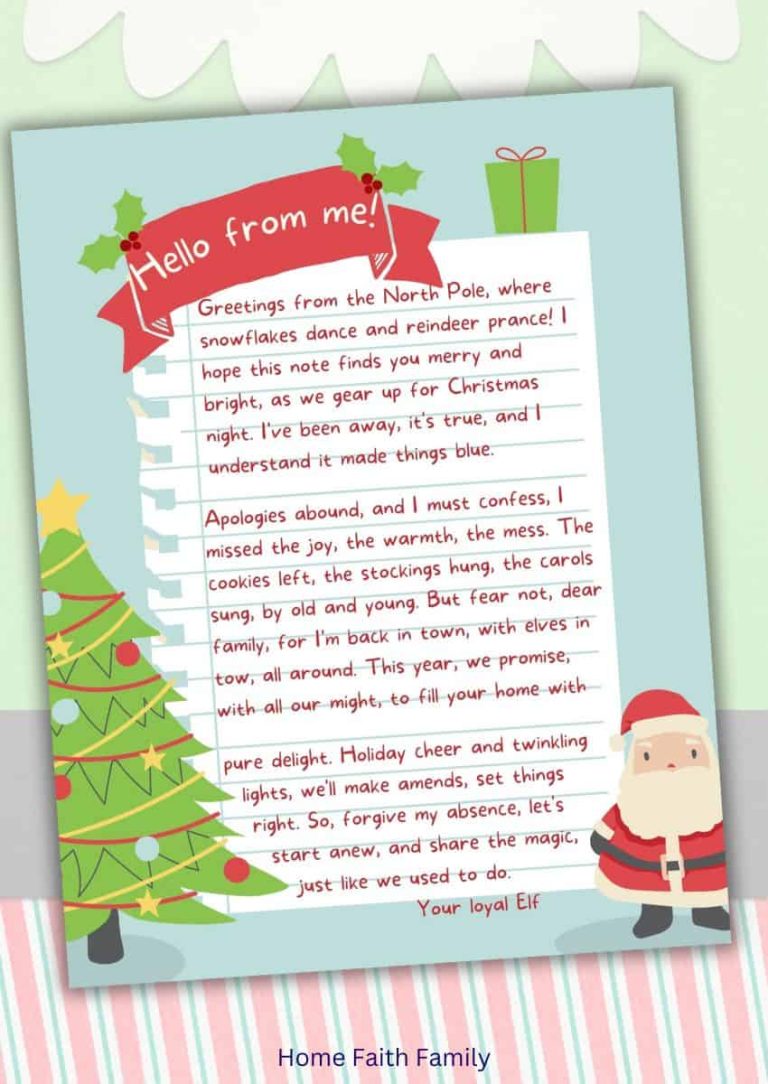 Hello from me!
Greetings from the North Pole, where
snowflakes dance and reindeer prance! I
hope this note finds you merry and
bright, as we gear up for Christmas
night. I've been away, it's true, and I
understand it made things blue.
Apologies abound, and I must confess, I
missed the joy, the warmth, the mess. The
cookies left, the stockings hung, the carols
sung, by old and young. But fear not, dear
family, for I'm back in town, with elves in
tow, all around. This year, we promise,
with all our might, to fill your home with
pure delight. Holiday cheer and twinkling
lights, we'll make amends, set things
right. So, forgive my absence, let's
start anew, and share the magic,
just like we used to do.
Your loyal Elf
Home Faith Family